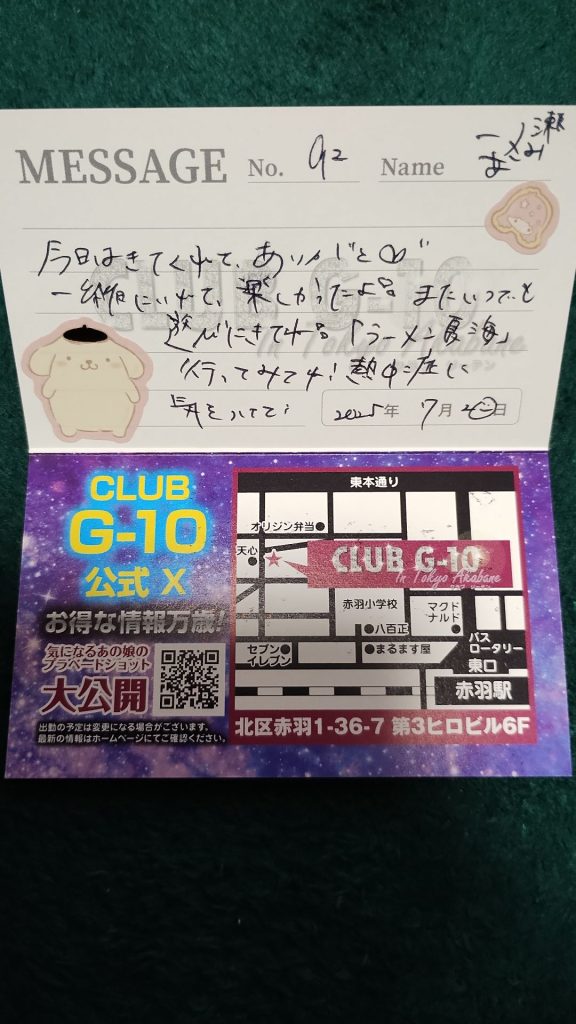 MESSAGE No. 92 Name 一ノ瀬
あさみ
今日はきてくれて、ありがと♡"
一緒にいれて、楽しかったよ!! またいつでも
遊びにきてネ!! 「ラーメン夏海」
行ってみてネ! 熱中症に
気をつけて!
2025年 7月 20日
CLUB G-10
In Tokyo Akabane
クラブ ジーテン
CLUB
G-10
公式 X
お得な情報万歳!
気になるあの娘の
プラベードショット
大公開
出勤の予定は変更になる場合がございます。
最新の情報はホームページにてご確認ください。
東本通り
オリジン弁当
天心
CLUB G-10
In Tokyo Akabane
クラブ ジーテン
赤羽小学校
マクド
ナルド
八百正
バス
ロータリー
セブン
イレブン
まるます屋
東口
赤羽駅
北区赤羽1-36-7 第3ヒロビル6F